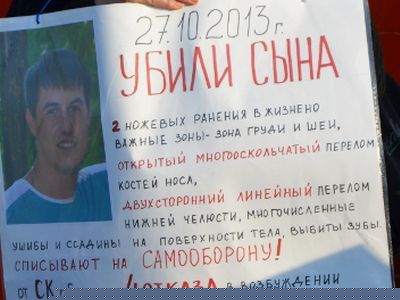 27.10.2013 г.
УБИЛИ СЫНА
2 НОЖЕВЫХ РАНЕНИЯ В ЖИЗНЕНО
ВАЖНЫЕ ЗОНЫ - ЗОНА ГРУДИ И ШЕИ,
ОТКРЫТЫЙ МНОГООСКОЛЬЧАТЫЙ ПЕРЕЛОМ
КОСТЕЙ НОСА,
ДВУХСТОРОННИЙ ЛИНЕЙНЫЙ ПЕРЕЛОМ
НИЖНЕЙ ЧЕЛЮСТИ, МНОГОЧИСЛЕННЫЕ
УШИБЫ И ССАДИНЫ НА ПОВЕРХНОСТИ ТЕЛА, ВЫБИТЫ ЗУБЫ.
СПИСЫВАЮТ НА САМООБОРОНУ!
ОТ СК ОТКАЗА В ВОЗБУЖДЕНИИ